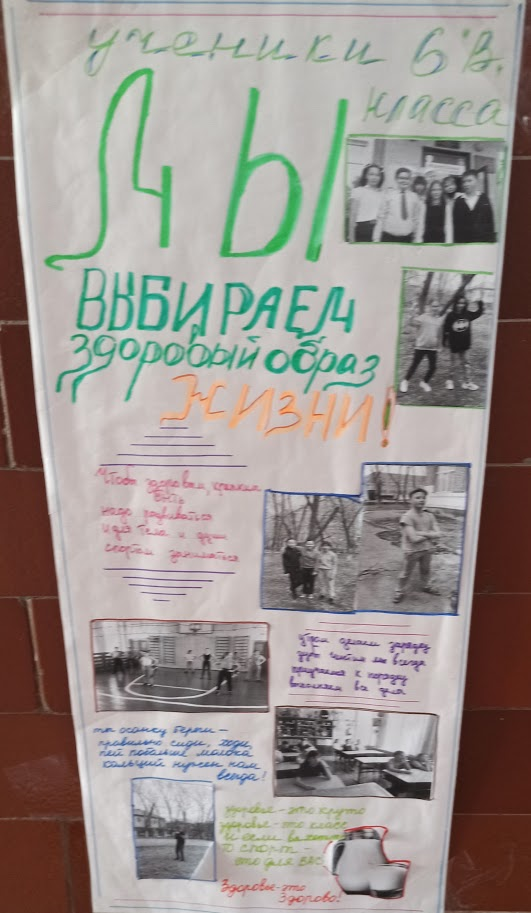 ученики 6 "В"
класса
МЫ
ВЫБИРАЕМ
здоровый образ
жизни!
Чтобы здоровым, крепким
быть
надо развиваться
и для тела и души
спортом заниматься
утром делаем зарядку
мы всегда
приучаемся к порядку
все дела
ты осанку береги -
правильно сиди, ходи
пей побольше молока
кальций нужен нам
всегда!
здоровье - это круто
здоровье - это класс
и если вы хотите
то спорт -
это для ВАС
Здоровье - это
Здорово!